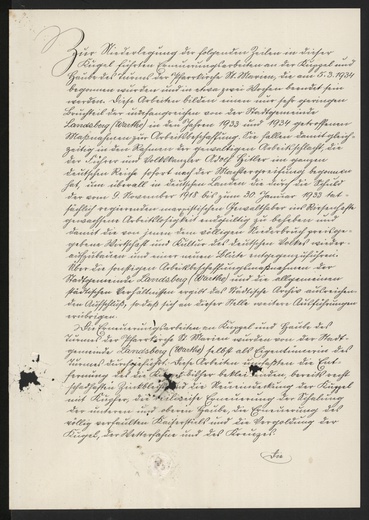 Zur Niederlegung der folgenden Zeilen in dieser
Kugel führten Erneuerungsarbeiten an der Kuppel und
Haube des Turms der Pfarrkirche St. Marien, die am 5.3.1934
begonnen wurden und in etwa zwei Wochen beendet sein
werden. Diese Arbeiten bilden einen nur sehr geringen
Bruchteil der umfangreichen von der Stadtgemeinde
Landsberg (Warthe) in den Jahren 1933 und 1934 getroffenen
Maßnahmen zur Arbeitsbeschaffung. Sie fallen damit gleich-
zeitig in den Rahmen der gewaltigen Arbeitsschlacht, die
der Führer und Volkskanzler Adolf Hitler im ganzen
deutschen Reiche sofort nach der Machtergreifung begonnen
hat, um überall in deutschen Landen die durch die Schuld
der vom 9. November 1918 bis zum 30. Januar 1933 tat-
sächlich regierenden marxistischen Gewalthaber ins Riesenhafte
gewachsene Arbeitslosigkeit endgültig zu beheben und
damit die von jenen dem völligen Niederbruch preisge-
gebene Wirtschaft und Kultur des deutschen Volkes wieder
aufzubauen und einer neuen Blüte entgegenzuführen.
Über die sonstigen Arbeitsbeschaffungsmaßnahmen der
Stadtgemeinde Landsberg (Warthe) und die allgemeinen
städtischen Verhältnisse ergibt das Städtische Archiv ausreichen-
den Aufschluß, sodaß sich an dieser Stelle weitere Ausführungen
erübrigen.
Die Erneuerungsarbeiten an Kuppel und Haube des
Turmes der Pfarrkirche St. Marien wurden von der Stadt-
gemeinde Landsberg (Warthe) selbst als Eigentümerin des
Turmes durchgeführt. Diese Arbeiten umfaßten die Ent-
fernung der bisher bereits recht
schadhaften und die Neueindeckung der Kuppel
mit Kupfer, die teilweise Erneuerung der Schalung
der unteren und oberen Haube, die Erneuerung des
völlig verfaulten Kaiserstiels und die Vergoldung der
Kugel, der Wetterfahne und des Kreuzes.
Die